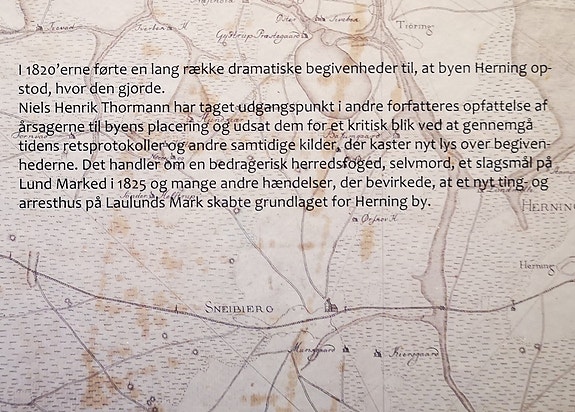 Tiøring
I 1820'erne førte en lang række dramatiske begivenheder til, at byen Herning op-
stod, hvor den gjorde.
Niels Henrik Thormann har taget udgangspunkt i andre forfatteres opfattelse af
årsagerne til byens placering og udsat dem for et kritisk blik ved at gennemgå
tidens retsprotokoller og andre samtidige kilder, der kaster nyt lys over begiven-
hederne. Det handler om en bedragerisk herredsfoged, selvmord, et slagsmål på
Lund Marked i 1825 og mange andre hændelser, der bevirkede, at et nyt ting- og
arresthus på Laulunds Mark skabte grundlaget for Herning by.
HERNING
Herning
SNEIBIERG